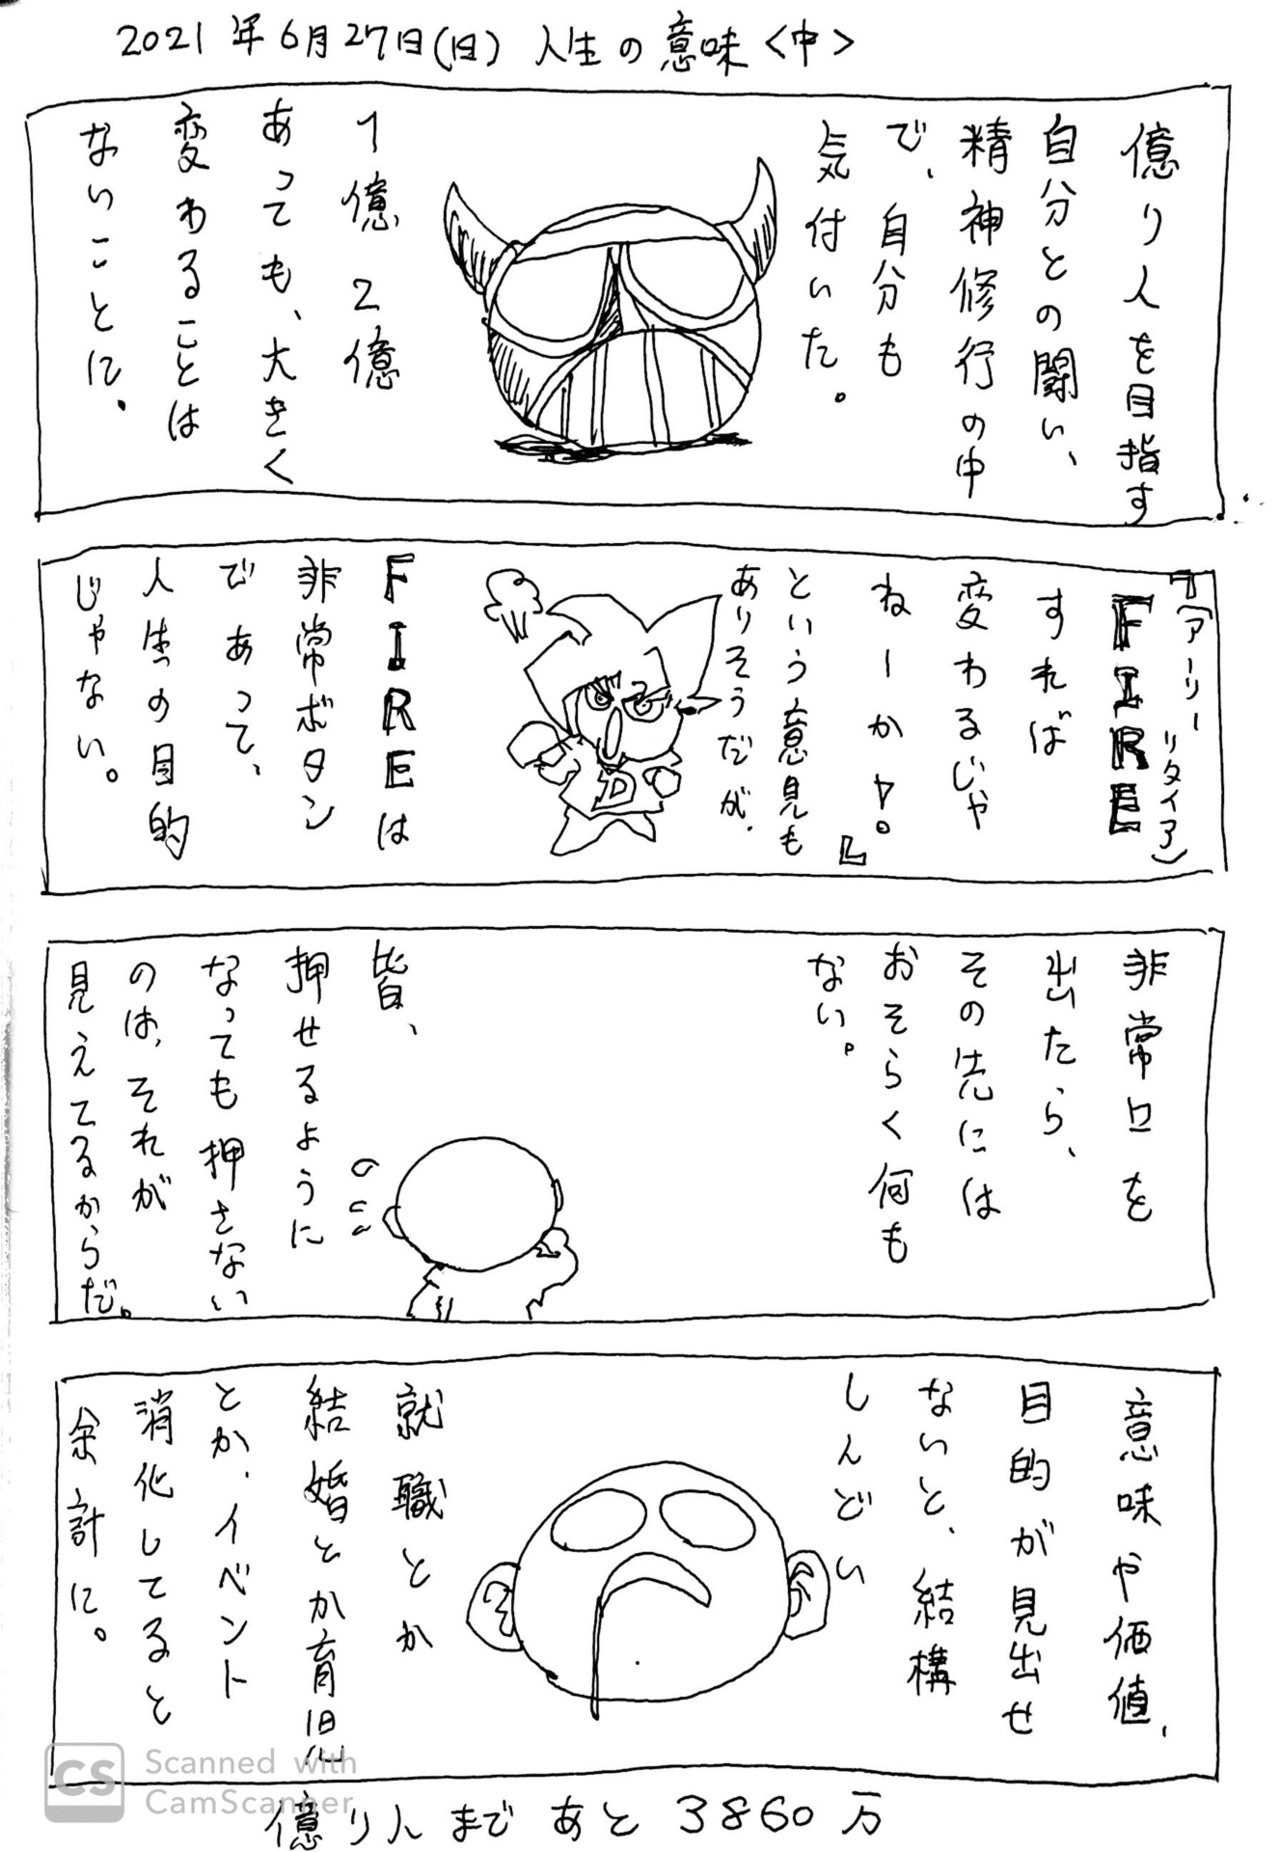 2021年6月27日(日) 人生の意味<中>
億り人を目指す
自分との闘い、
精神修行の中
で、自分も
気付いた。
1億2億
あっても、大きく
変わることは
ないことに、
『(アーリーリタイア)
FIRE
すれば
変わるじゃ
ねーかヤ。』
という意見も
ありそうだが、
FIREは
非常ボタン
であって、
人生の目的
じゃない。
非常口を
出たら、
その先には
おそらく何も
ない。
皆、
押せるように
なっても押さない
のは、それが
見えてるからだ。
意味や価値、
目的が見出せ
ないと、結構
しんどい
就職とか
結婚とか育児
とか、イベント
消化してると
余計に。
Scanned with
CamScanner
CS
億り人まであと3860万